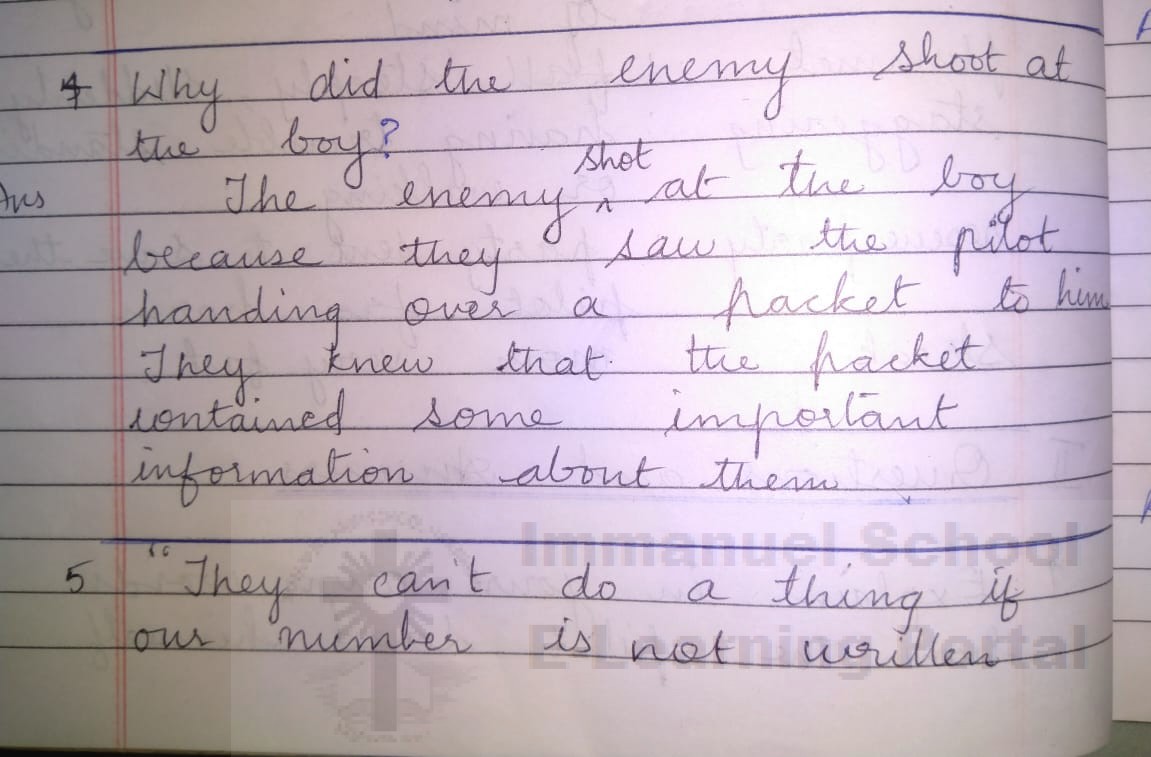 4 Why did the enemy shoot at
the boy?
Ans The enemy ^ shot at the boy
because they saw the pilot
handing over a packet to him
They knew that the packet
contained some important
information about them
Immanuel School
5 "They can't do a thing if
our number is not written
E-Learning Portal